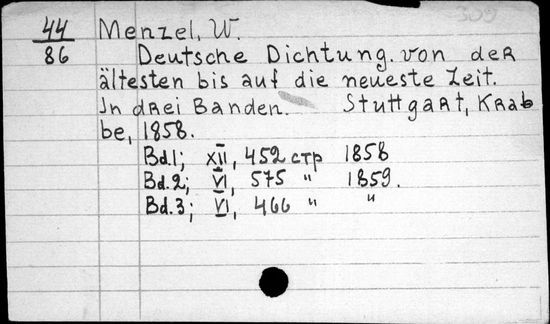 309
44 Menzel, W.
86 Deutsche Dichtung von der
ältesten bis auf die neueste Zeit.
In drei Banden. Stuttgart, Krab
be, 1858.
Bd.1; XII, 452 стр 1858
Bd.2; VI, 575 " 1859.
Bd.3; VI, 466 " "